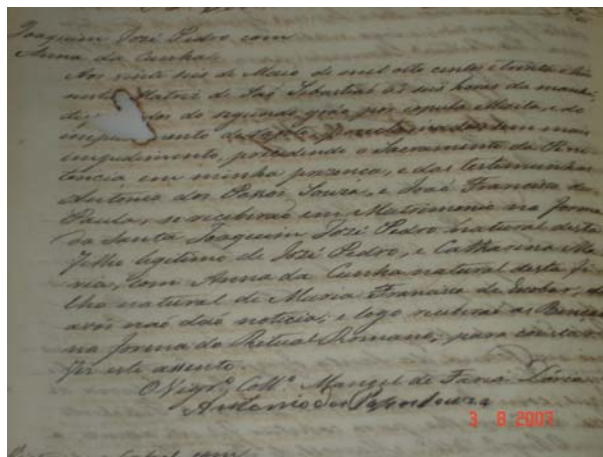 Joaquim José Pedro com
Anna da Cunha
Aos vinte seis de Maio de mil oito centos e trinta e
nesta Matriz de São Sebastião às seis horas da manhã,
do segundo gráo por copula illicita, e do
impedimento sem mais
impedimento, precedendo o Sacramento da Peni
tencia em minha prezença, e das testemunhas
Antonio dos Passos Souza, e José Francisco de
Paula, se receberão em Matrimonio na forma
da Santa Joaquim José Pedro natural desta
Filho legitimo de José Pedro, e Catharina Ma
ria, com Anna da Cunha natural desta fi
lha natural de Maria Francisca de Escobar,
avós não dão noticia; e logo receberão as Bençoes
na forma do Ritual Romano; para constar
fiz este assento.
O Vigr.º Coll.º Manoel de Faria Doria
Antonio dos Passos Souza
3 8 2007